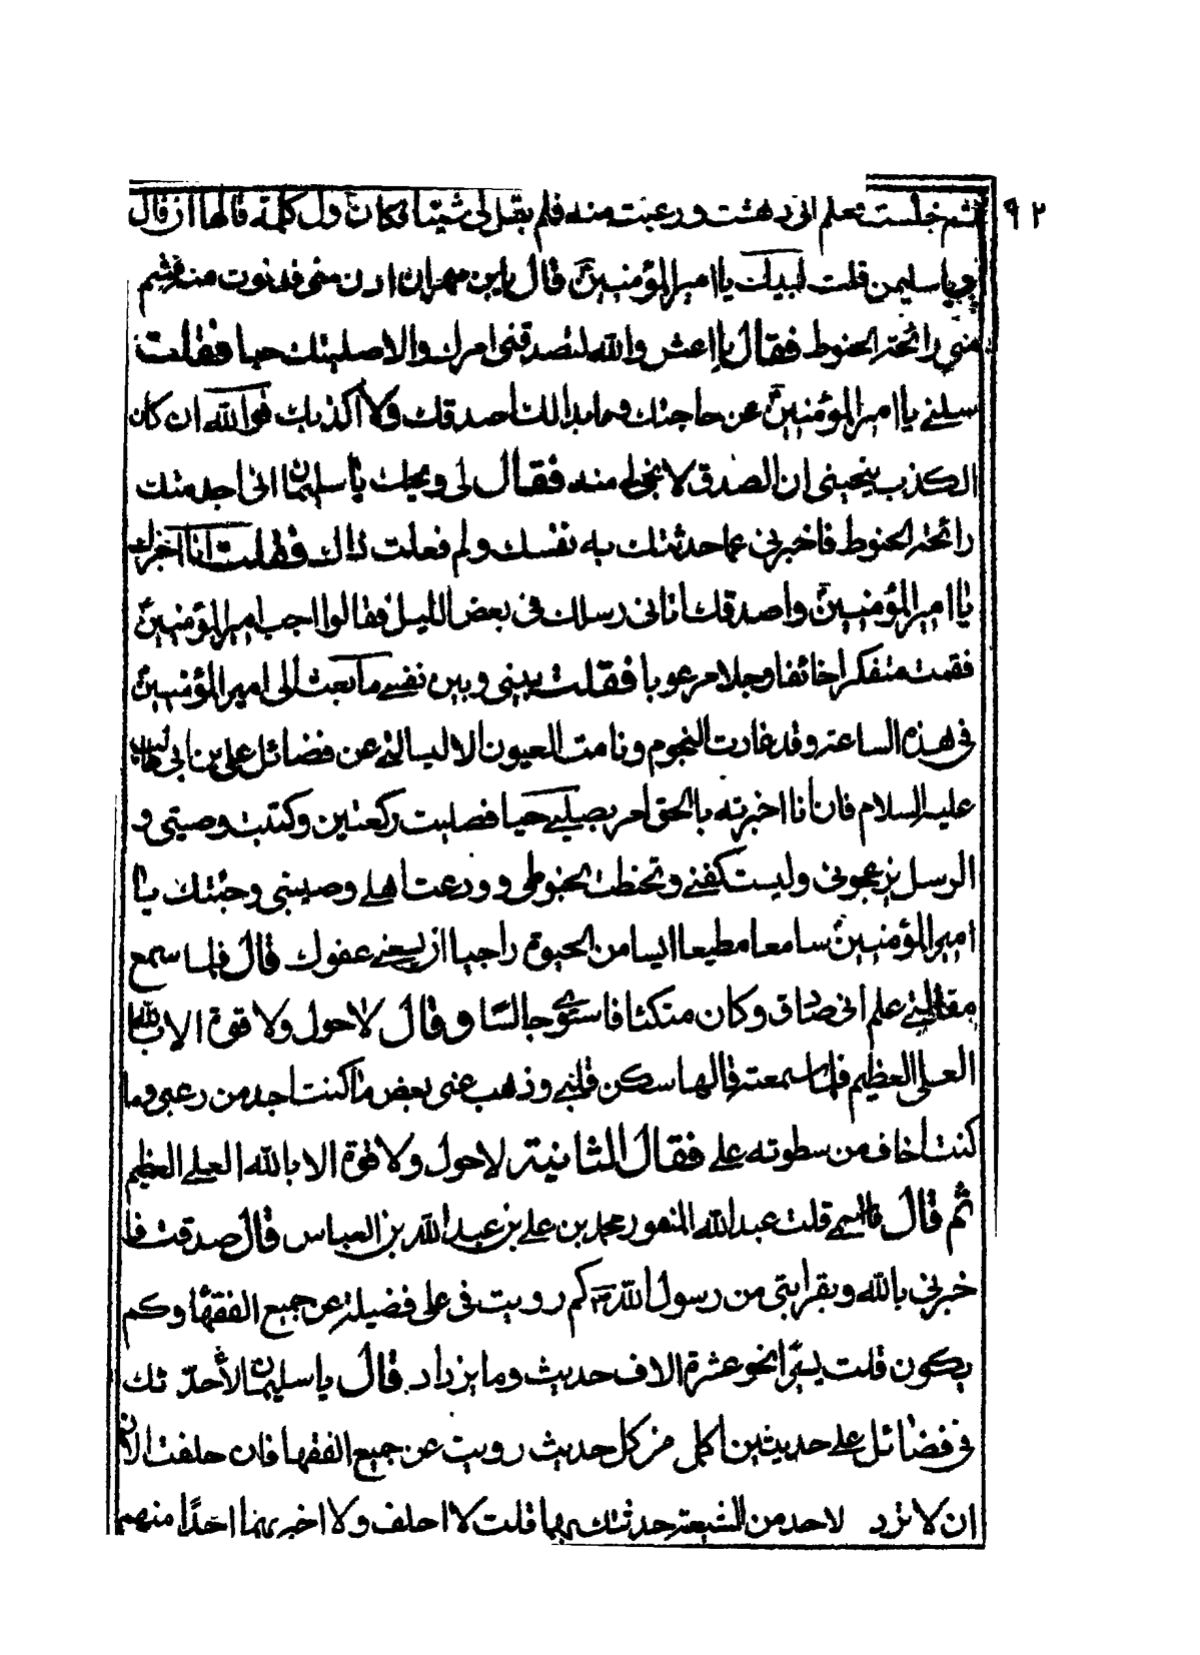 ٩٢
ثم جلست فعلم انى دهشت ورعبت منه فلم يقبل لى شيئا فكان اول كلمة قالها ان قال
لى يا سليمن قلت لبيك يا امير المؤمنين قال يا بن مهران ادن منى فدنوت منه فشم
منى رائحة الحنوط فقال يا اعمش والله لتصدقنى امرك والا صلبتك حيا فقلت
سلنى يا امير المؤمنين عن حاجتك وما بدا لك اصدقك ولا اكذبك فوالله ان كان
الكذب ينجينى ان الصدق لا نجى منه فقال لى ويحك يا سليمان انى اجد منك
رائحة الحنوط فاخبرنى عما حدثتك به نفسك ولم فعلت ذلك فقلت انا اخبرك
يا امير المؤمنين واصدقك اتانى رسلك فى بعض الليل فقالوا اجب امير المؤمنين
فقمت متفكرا خائفا وجلا مرعوبا فقلت بينى وبين نفسى ما بعث الى امير المؤمنين
فى هذه الساعة وقد غارت النجوم ونامت العيون الا ليسالنى عن فضائل على بن ابى طالب
عليه السلام فان انا اخبرته بالحق امر بصلبى حيا فصليت ركعتين وكتبت وصيتى و
الرسل يزعجونى ولبست كفنى وتحنطت بحنوطى وودعت اهلى وصبيتى وجئتك يا
امير المؤمنين سامعا مطيعا ايسا من الحيوة راجيا ان يسعنى عفوك قال فلما سمع
مقالتى علم انى صادق وكان متكئا فاستوى جالسا وقال لا حول ولا قوة الا بالله
العلى العظيم فلما سمعته قالها سكن قلبى وذهب عنى بعض ما كنت اجد من رعبى وما
كنت اخاف من سطوته على فقال الثانية لا حول ولا قوة الا بالله العلى العظيم
ثم قال ما اسمى قلت عبد الله المنصور محمد بن على بن عبد الله بن العباس قال صدقت فا
خبرنى بالله وبقرابتى من رسول الله ص كم رويت فى على فضيلة عن جميع الفقهاء وكم
يكون قلت يسيرا نحو عشرة الاف حديث وما يزداد قال يا سليمان لاحدّثنك
فى فضائل على حديثين اكمل من كل حديث رويت عن جميع الفقها فان حلفت الان
ان لا تزد لاحد من الشيعة حدثتك بهما قلت لا احلف ولا اخبر بهما احدا منهم